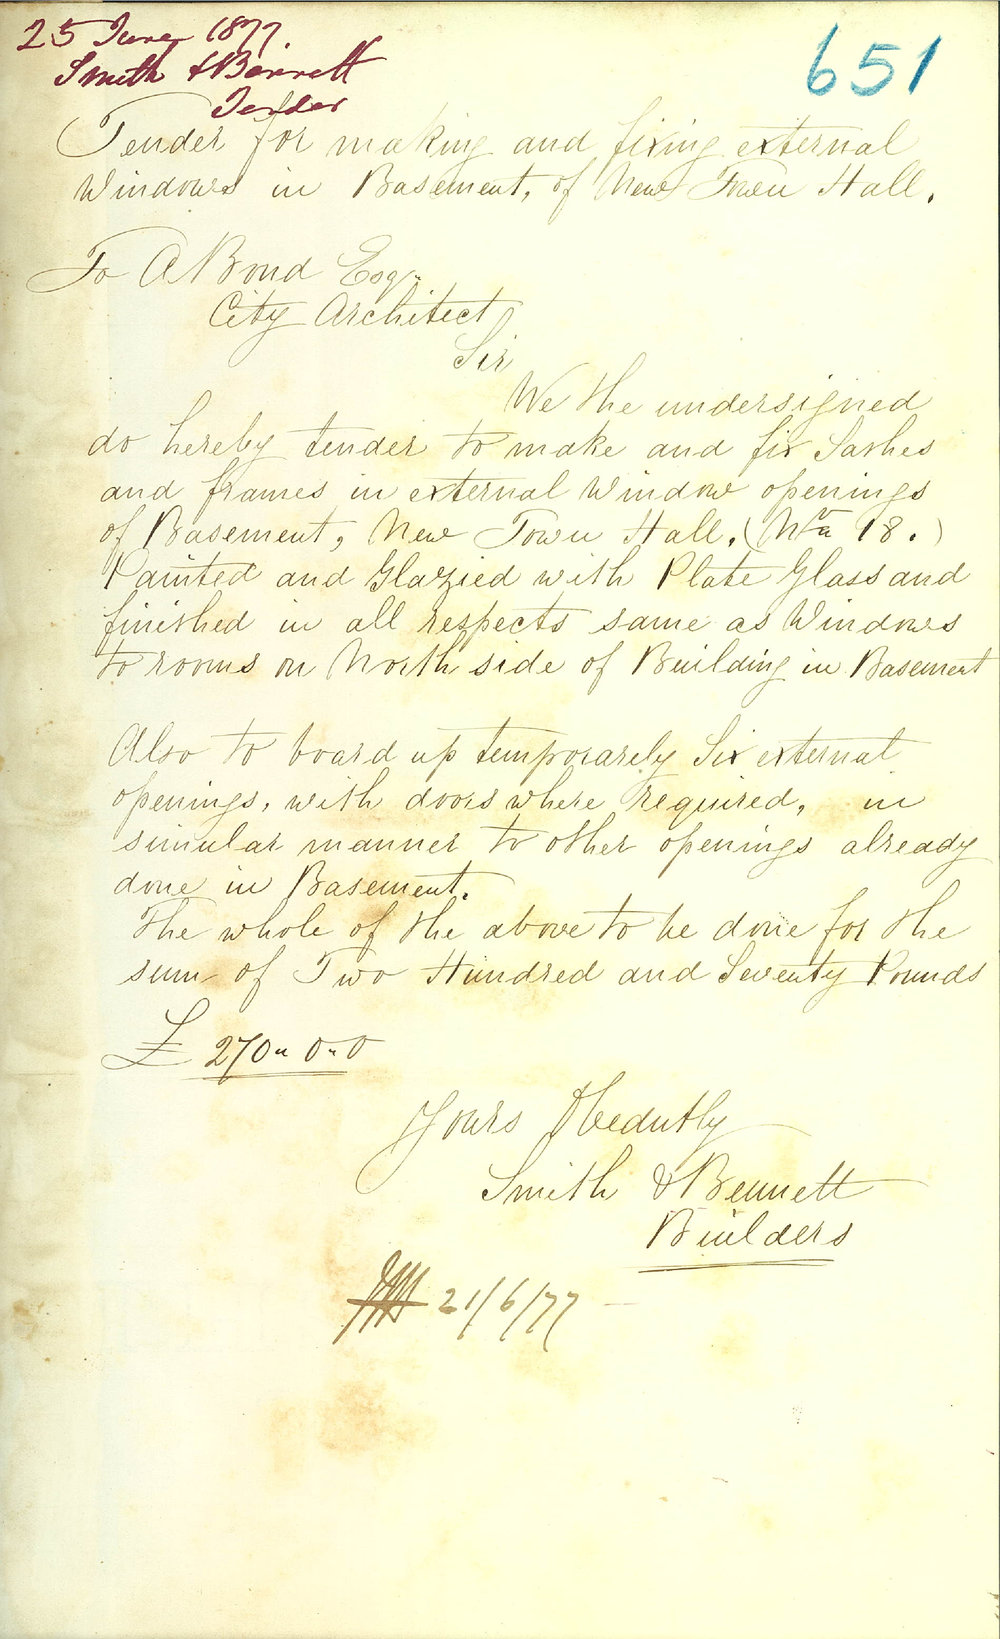 25 June 1877.
Smith & Bennett
Tender
651
Tender for making and fixing external
Windows in Basement, of New Town Hall.
To A Bond Esqr
City Architect
Sir
We the undersigned
do hereby tender to make and fix Sashes
and frames in external Window openings
of Basement, New Town Hall. (No 18.)
Painted and Glazied with Plate Glass and
finished in all respects same as Windows
to rooms on North side of Building in Basement
Also to board up temporarely Six external
openings, with doors where required, in
simular manner to other openings already
done in Basement.
The whole of the above to be done for the
sum of Two Hundred and Seventy Pounds
£ 270" 0" 0
Yours
Smith & Bennett
Builders
21/6/77